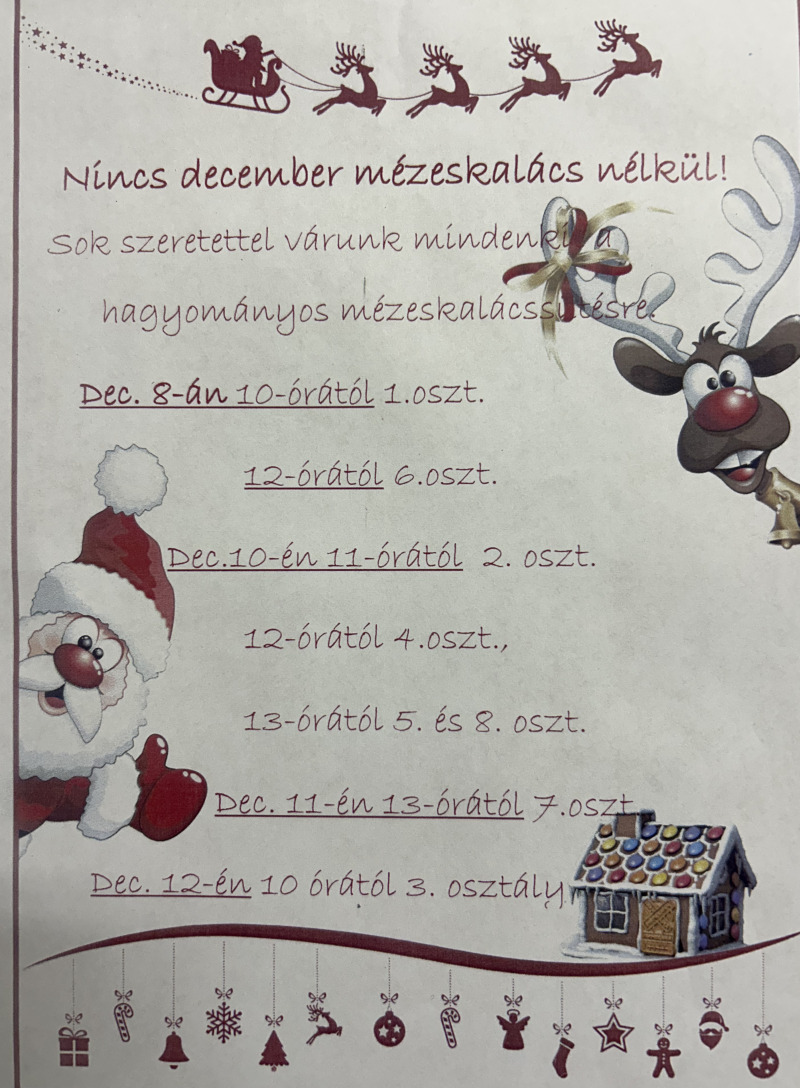 Nincs december mézeskalács nélkül!
Sok szeretettel várunk mindenkit a
hagyományos mézeskalácssütésre.
Dec. 8-án 10-órától 1.oszt.
12-órától 6.oszt.
Dec.10-én 11-órától 2. oszt.
12-órától 4.oszt.,
13-órától 5. és 8. oszt.
Dec. 11-én 13-órától 7.oszt.
Dec. 12-én 10 órától 3. osztály